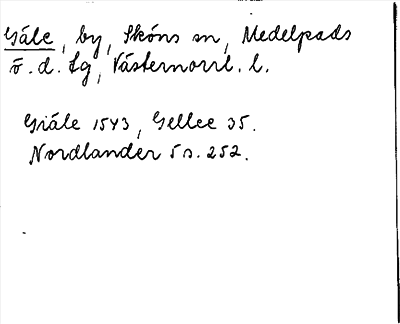 Gäle, by, Sköns sn, Medelpads
ö. d. tg, Västernorrl. l.
Giäle 1543, Gellee 35.
Nordlander 5 s. 252.